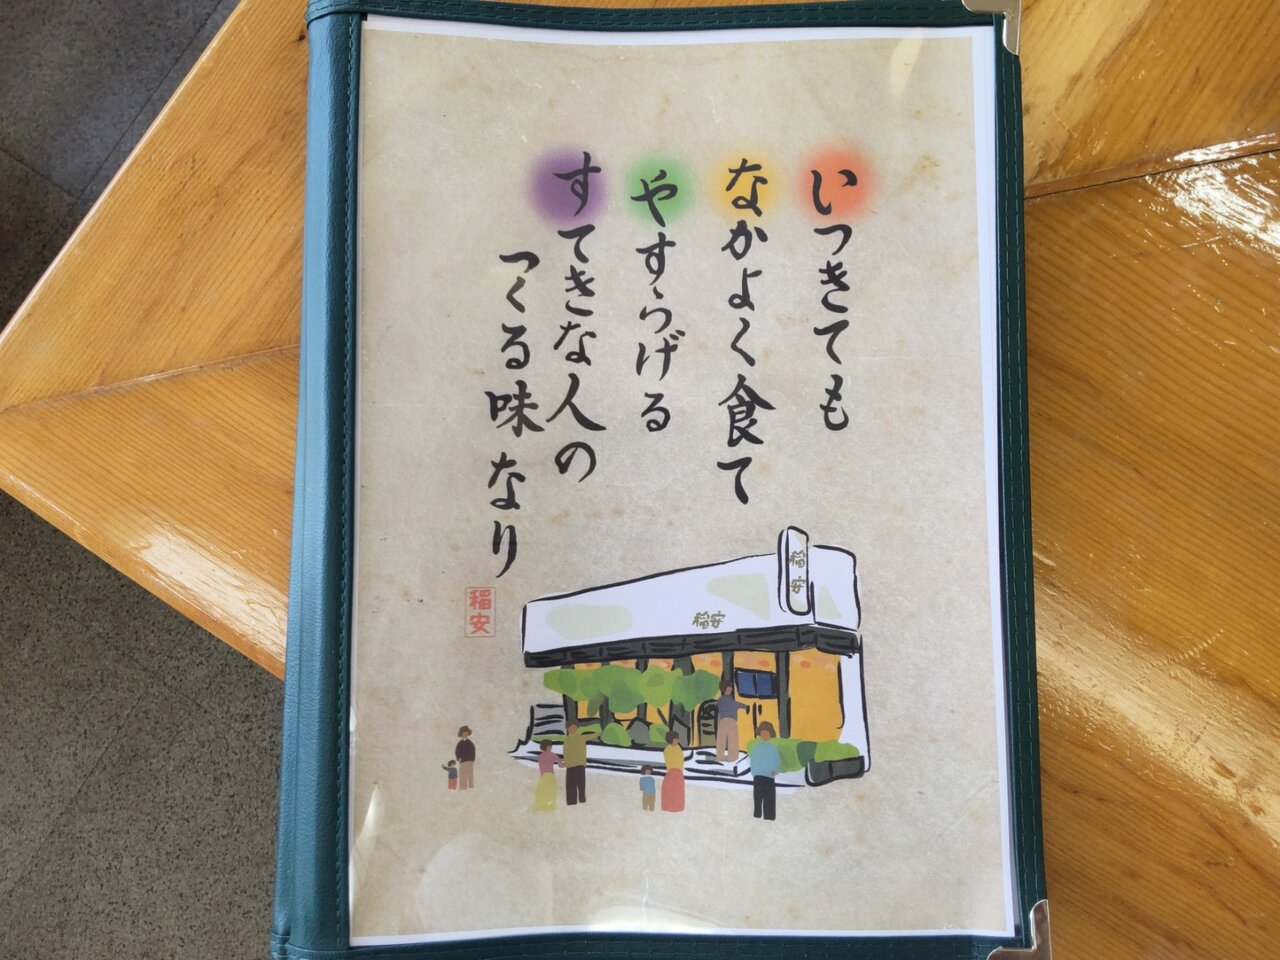 いつきても
なかよく食て
やすらげる
すてきな人の
つくる味なり
稲安
稲安
稲安